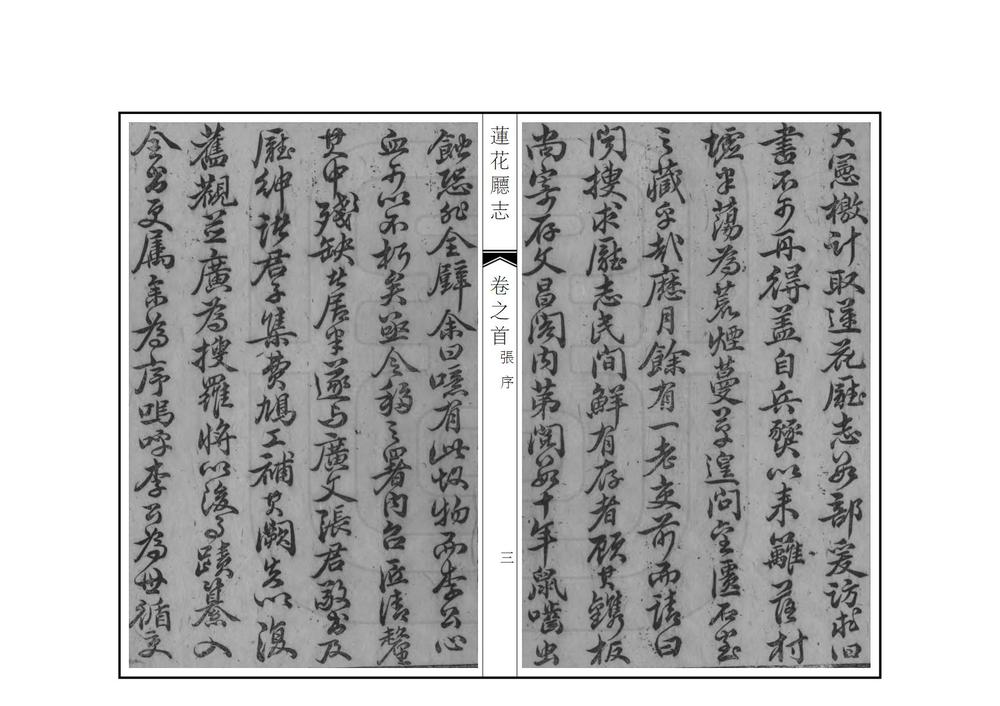 大憲檄計取蓮花廳志若干部爰訪求舊
書不可再得蓋自兵燹以來籬落村
墟半蕩為荒煙蔓草遑問金匱石室
之藏乎哉歷月餘有一老吏前而請曰
閱搜求廳志民間鮮有存者顧其鐫板
尚寄存文昌閣內第閱若干年鼠嚙虫
蓮花廳志
卷之首
張序
三
蝕恐非全璧余曰噫有此故物而李公心
血可以不朽矣亟令移之署內召匠清釐
其中殘缺者居半遂与廣文張君
廳紳諸君子集費鳩工補其闕失以復
舊觀並廣為搜羅將以後事蹟纂入
全書更屬余為序嗚呼李公為世循吏